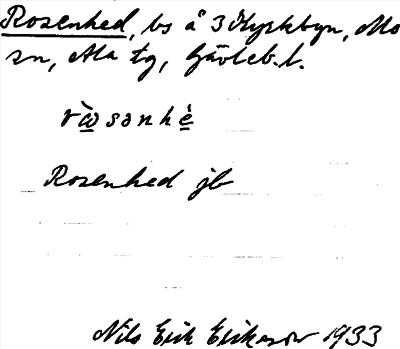 Rosenhed, bs å 3 Kyrkbyn, Mo
sn, Ala tg, Gävleb. l.
ròsənhè
Rosenhed jb
Nils Erik Eriksson 1933